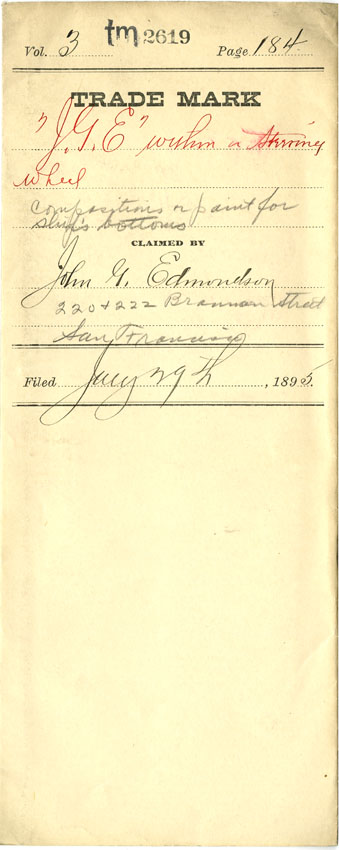 Vol. 3 tm 2619 Page 184
TRADE MARK
"J. G. E" within a Steering
wheel
Compositions or paint for
ship's bottoms
CLAIMED BY
John G. Edmondson
220 & 222 Brannan Street
San Francisco
Filed July 29th, 1895.